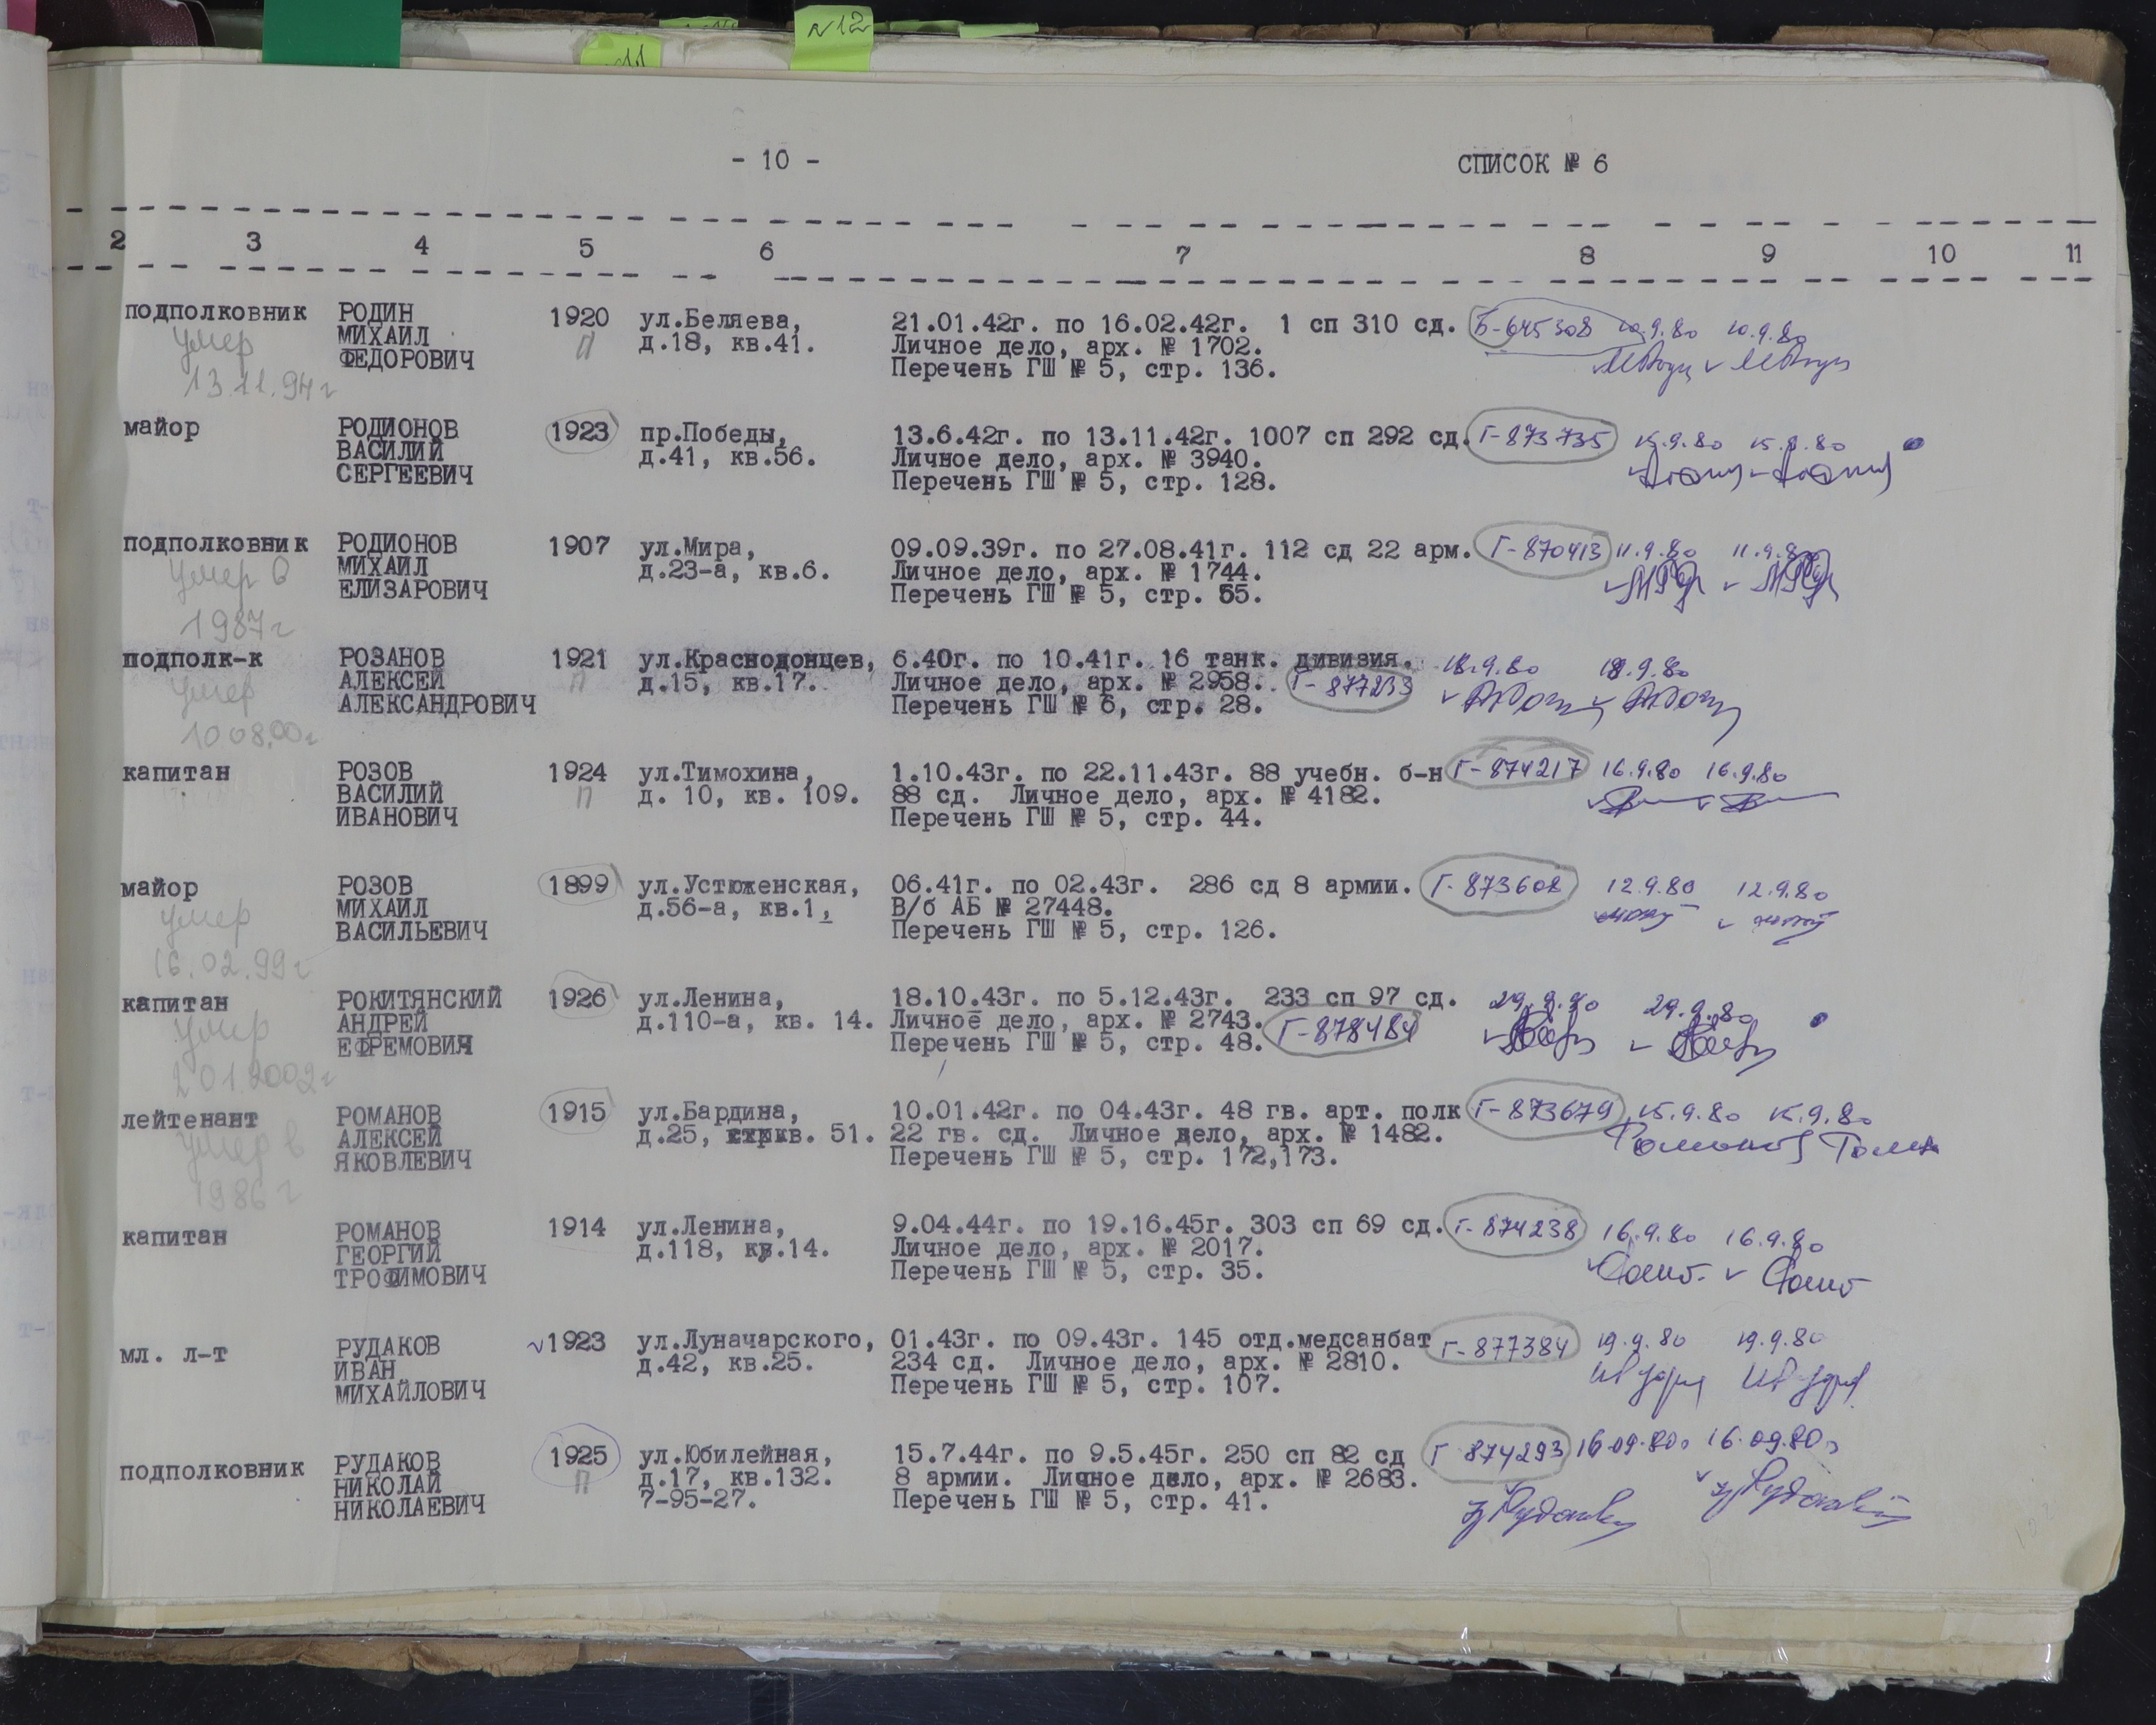 №12
11
- 10 -
СПИСОК № 6
2 3 4 5 6 7 8 9 10 11
подполковник РОДИН 1920 ул.Беляева, 21.01.42г. по 16.02.42г. 1 сп 310 сд. Б-645308 10.9.80 10.9.80
умер МИХАИЛ П д.18, кв.41. Личное дело, арх. № 1702.
13.11.94г ФЕДОРОВИЧ Перечень ГШ № 5, стр. 136.
майор РОДИОНОВ 1923 пр.Победы, 13.6.42г. по 13.11.42г. 1007 сп 292 сд. Г-873735 15.9.80 15.9.80
ВАСИЛИЙ д.41, кв.56. Личное дело, арх. № 3940.
СЕРГЕЕВИЧ Перечень ГШ № 5, стр. 128.
подполковник РОДИОНОВ 1907 ул.Мира, 09.09.39г. по 27.08.41г. 112 сд 22 арм. Г-870413 11.9.80 11.9.80
умер в МИХАИЛ д.23-а, кв.6. Личное дело, арх. № 1744.
1987г ЕЛИЗАРОВИЧ Перечень ГШ № 5, стр. 55.
подполк-к РОЗАНОВ 1921 ул.Краснодонцев, 6.40г. по 10.41г. 16 танк. дивизия. 18.9.80 18.9.80
умер АЛЕКСЕЙ П д.15, кв.17. Личное дело, арх. № 2958. Г-877233
10 08.00г АЛЕКСАНДРОВИЧ Перечень ГШ № 6, стр. 28.
капитан РОЗОВ 1924 ул.Тимохина, 1.10.43г. по 22.11.43г. 88 учебн. б-н Г-874217 16.9.80 16.9.80
ВАСИЛИЙ П д. 10, кв. 109. 88 сд. Личное дело, арх. № 4182.
ИВАНОВИЧ Перечень ГШ № 5, стр. 44.
майор РОЗОВ 1899 ул.Устюженская, 06.41г. по 02.43г. 286 сд 8 армии. Г-873608 12.9.80 12.9.80
умер МИХАИЛ д.56-а, кв.1, В/б АБ № 27448.
16.02.99г ВАСИЛЬЕВИЧ Перечень ГШ № 5, стр. 126.
капитан РОКИТЯНСКИЙ 1926 ул.Ленина, 18.10.43г. по 5.12.43г. 233 сп 97 сд. 29.9.80 29.9.80
умер АНДРЕЙ д.110-а, кв. 14. Личное дело, арх. № 2743. Г-878484
2 01.2002г ЕФРЕМОВИЧ Перечень ГШ № 5, стр. 48.
лейтенант РОМАНОВ 1915 ул.Бардина, 10.01.42г. по 04.43г. 48 гв. арт. полк Г-873679 15.9.80 15.9.80
умер в АЛЕКСЕЙ д.25, кв. 51. 22 гв. сд. Личное дело, арх. № 1482.
1986г ЯКОВЛЕВИЧ Перечень ГШ № 5, стр. 172,173.
капитан РОМАНОВ 1914 ул.Ленина, 9.04.44г. по 19.16.45г. 303 сп 69 сд. Г-874238 16.9.80 16.9.80
ГЕОРГИЙ д.118, кв.14. Личное дело, арх. № 2017.
ТРОФИМОВИЧ Перечень ГШ № 5, стр. 35.
мл. л-т РУДАКОВ 1923 ул.Луначарского, 01.43г. по 09.43г. 145 отд.медсанбат Г-877384 19.9.80 19.9.80
ИВАН д.42, кв.25. 234 сд. Личное дело, арх. № 2810.
МИХАЙЛОВИЧ Перечень ГШ № 5, стр. 107.
подполковник РУДАКОВ 1925 ул.Юбилейная, 15.7.44г. по 9.5.45г. 250 сп 82 сд Г 874293 16.09.80г 16.09.80г
НИКОЛАЙ П д.17, кв.132. 8 армии. Личное дело, арх. № 2683.
НИКОЛАЕВИЧ 7-95-27. Перечень ГШ № 5, стр. 41.